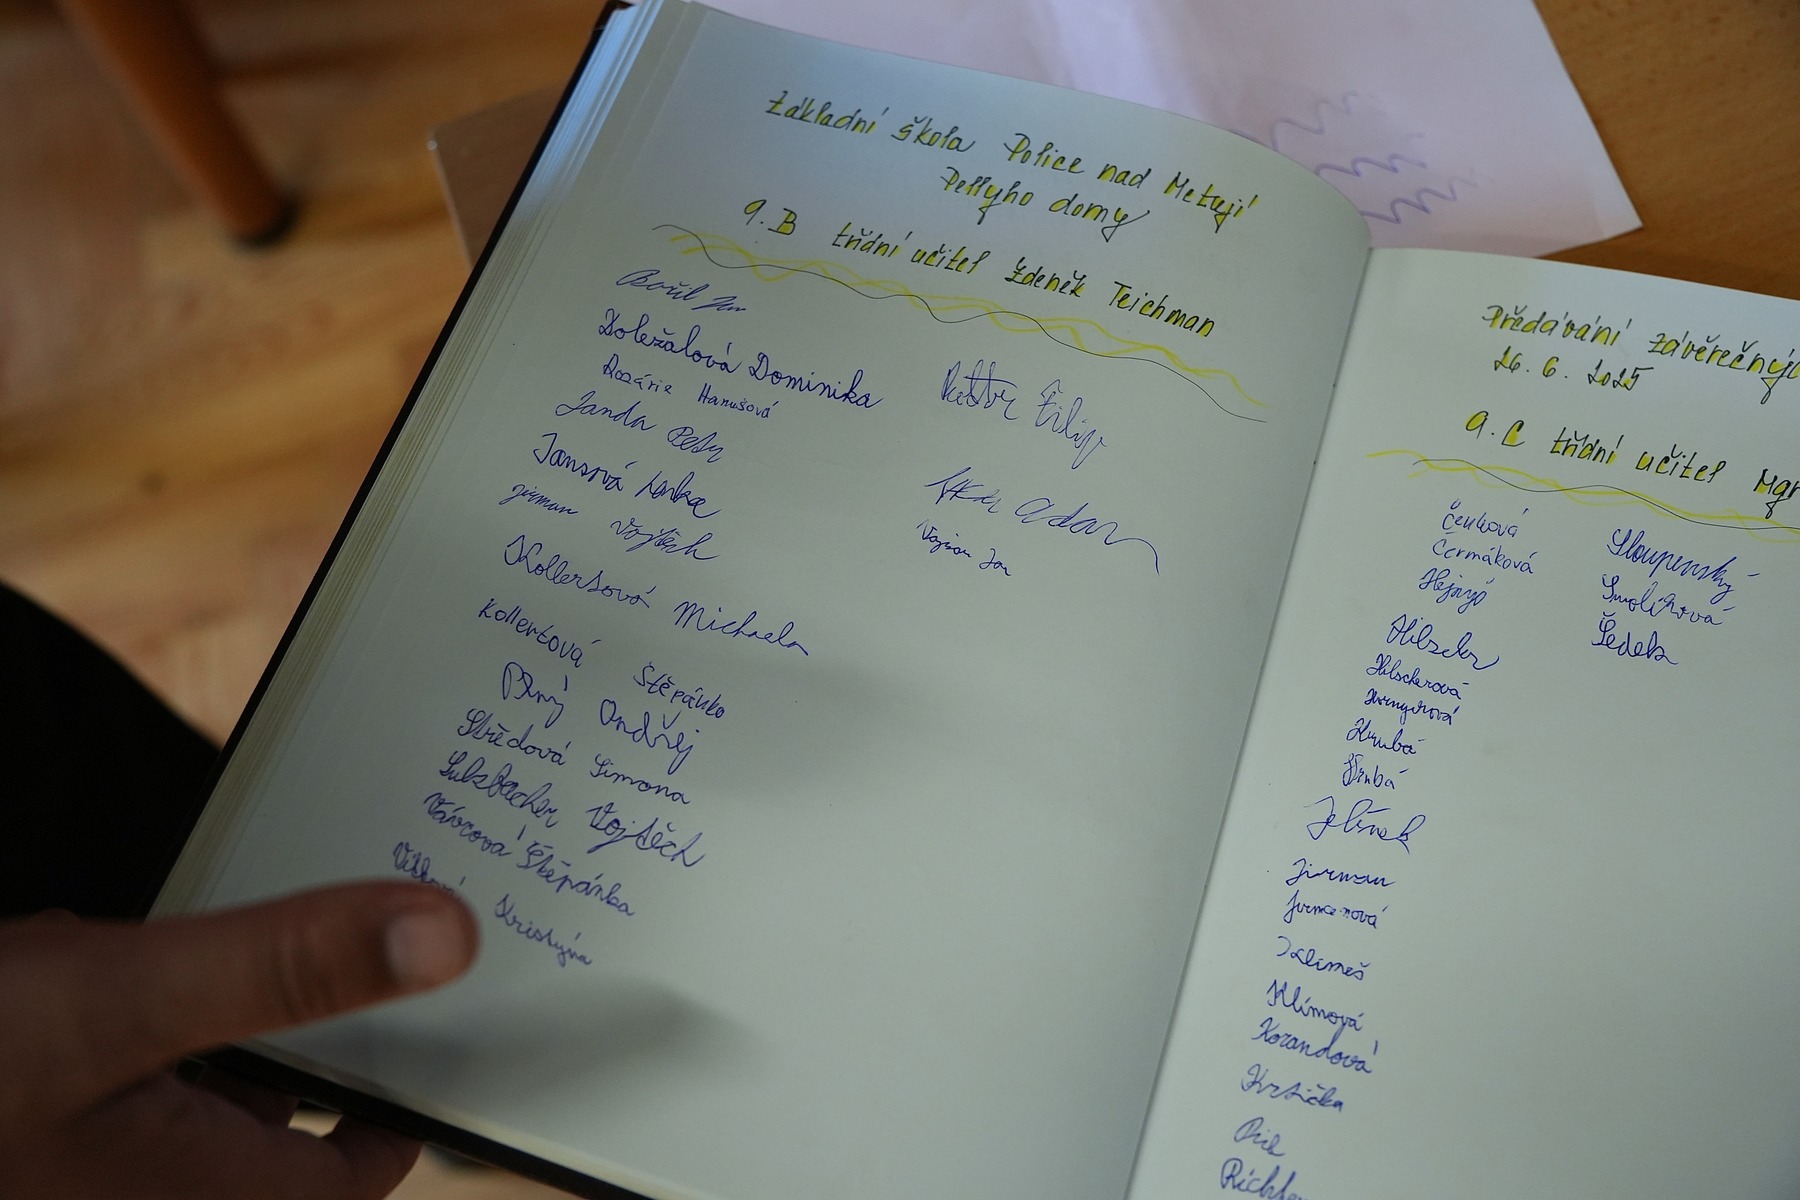 Základní škola Police nad Metují
Pellyho domy
9.B třídní učitel Zdeněk Teichman
Bořil Jan
Doležalová Dominika
Rozárie Hanušová
Janda Petr
Jansová Lenka
Jirman Vojtěch
Kollertová Michaela
Kollertová Štěpánka
Ondřej
Středová Simona
Sulzbacher Vojtěch
Vávrová Štěpánka
Kristýna
Filip
Adam
Jan
Předávání závěrečný
26. 6. 2025
9.C třídní učitel Mgr
Čermáková
Hejný
Hilscher
Hilscherová
Hrubá
Hrubá
Jelínek
Jirman
Jirmanová
Klimeš
Klímová
Korandová
Krtička
Sloupenský
Smolíková
Šedek